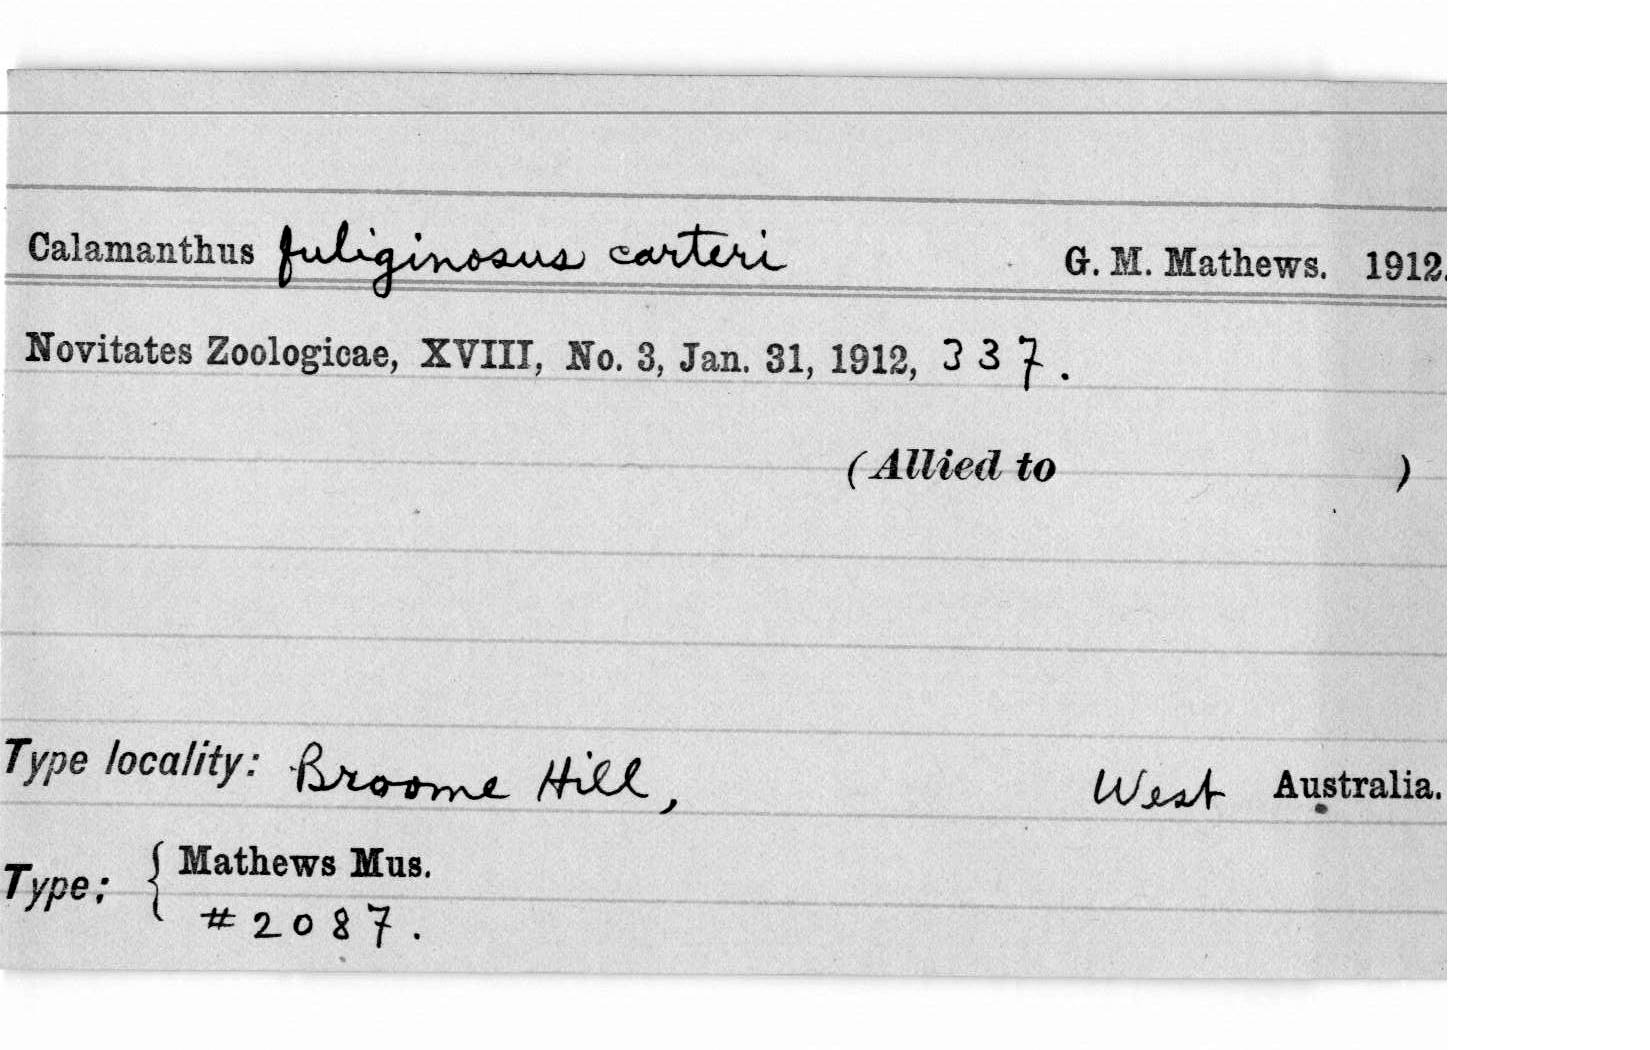 Calamanthus fuliginosus carteri G. M. Mathews. 1912.
Novitates Zoologicae, XVIII, No. 3, Jan. 31, 1912, 337.
(Allied to )
Type locality: Broome Hill, West Australia.
Type: { Mathews Mus.
#2087.